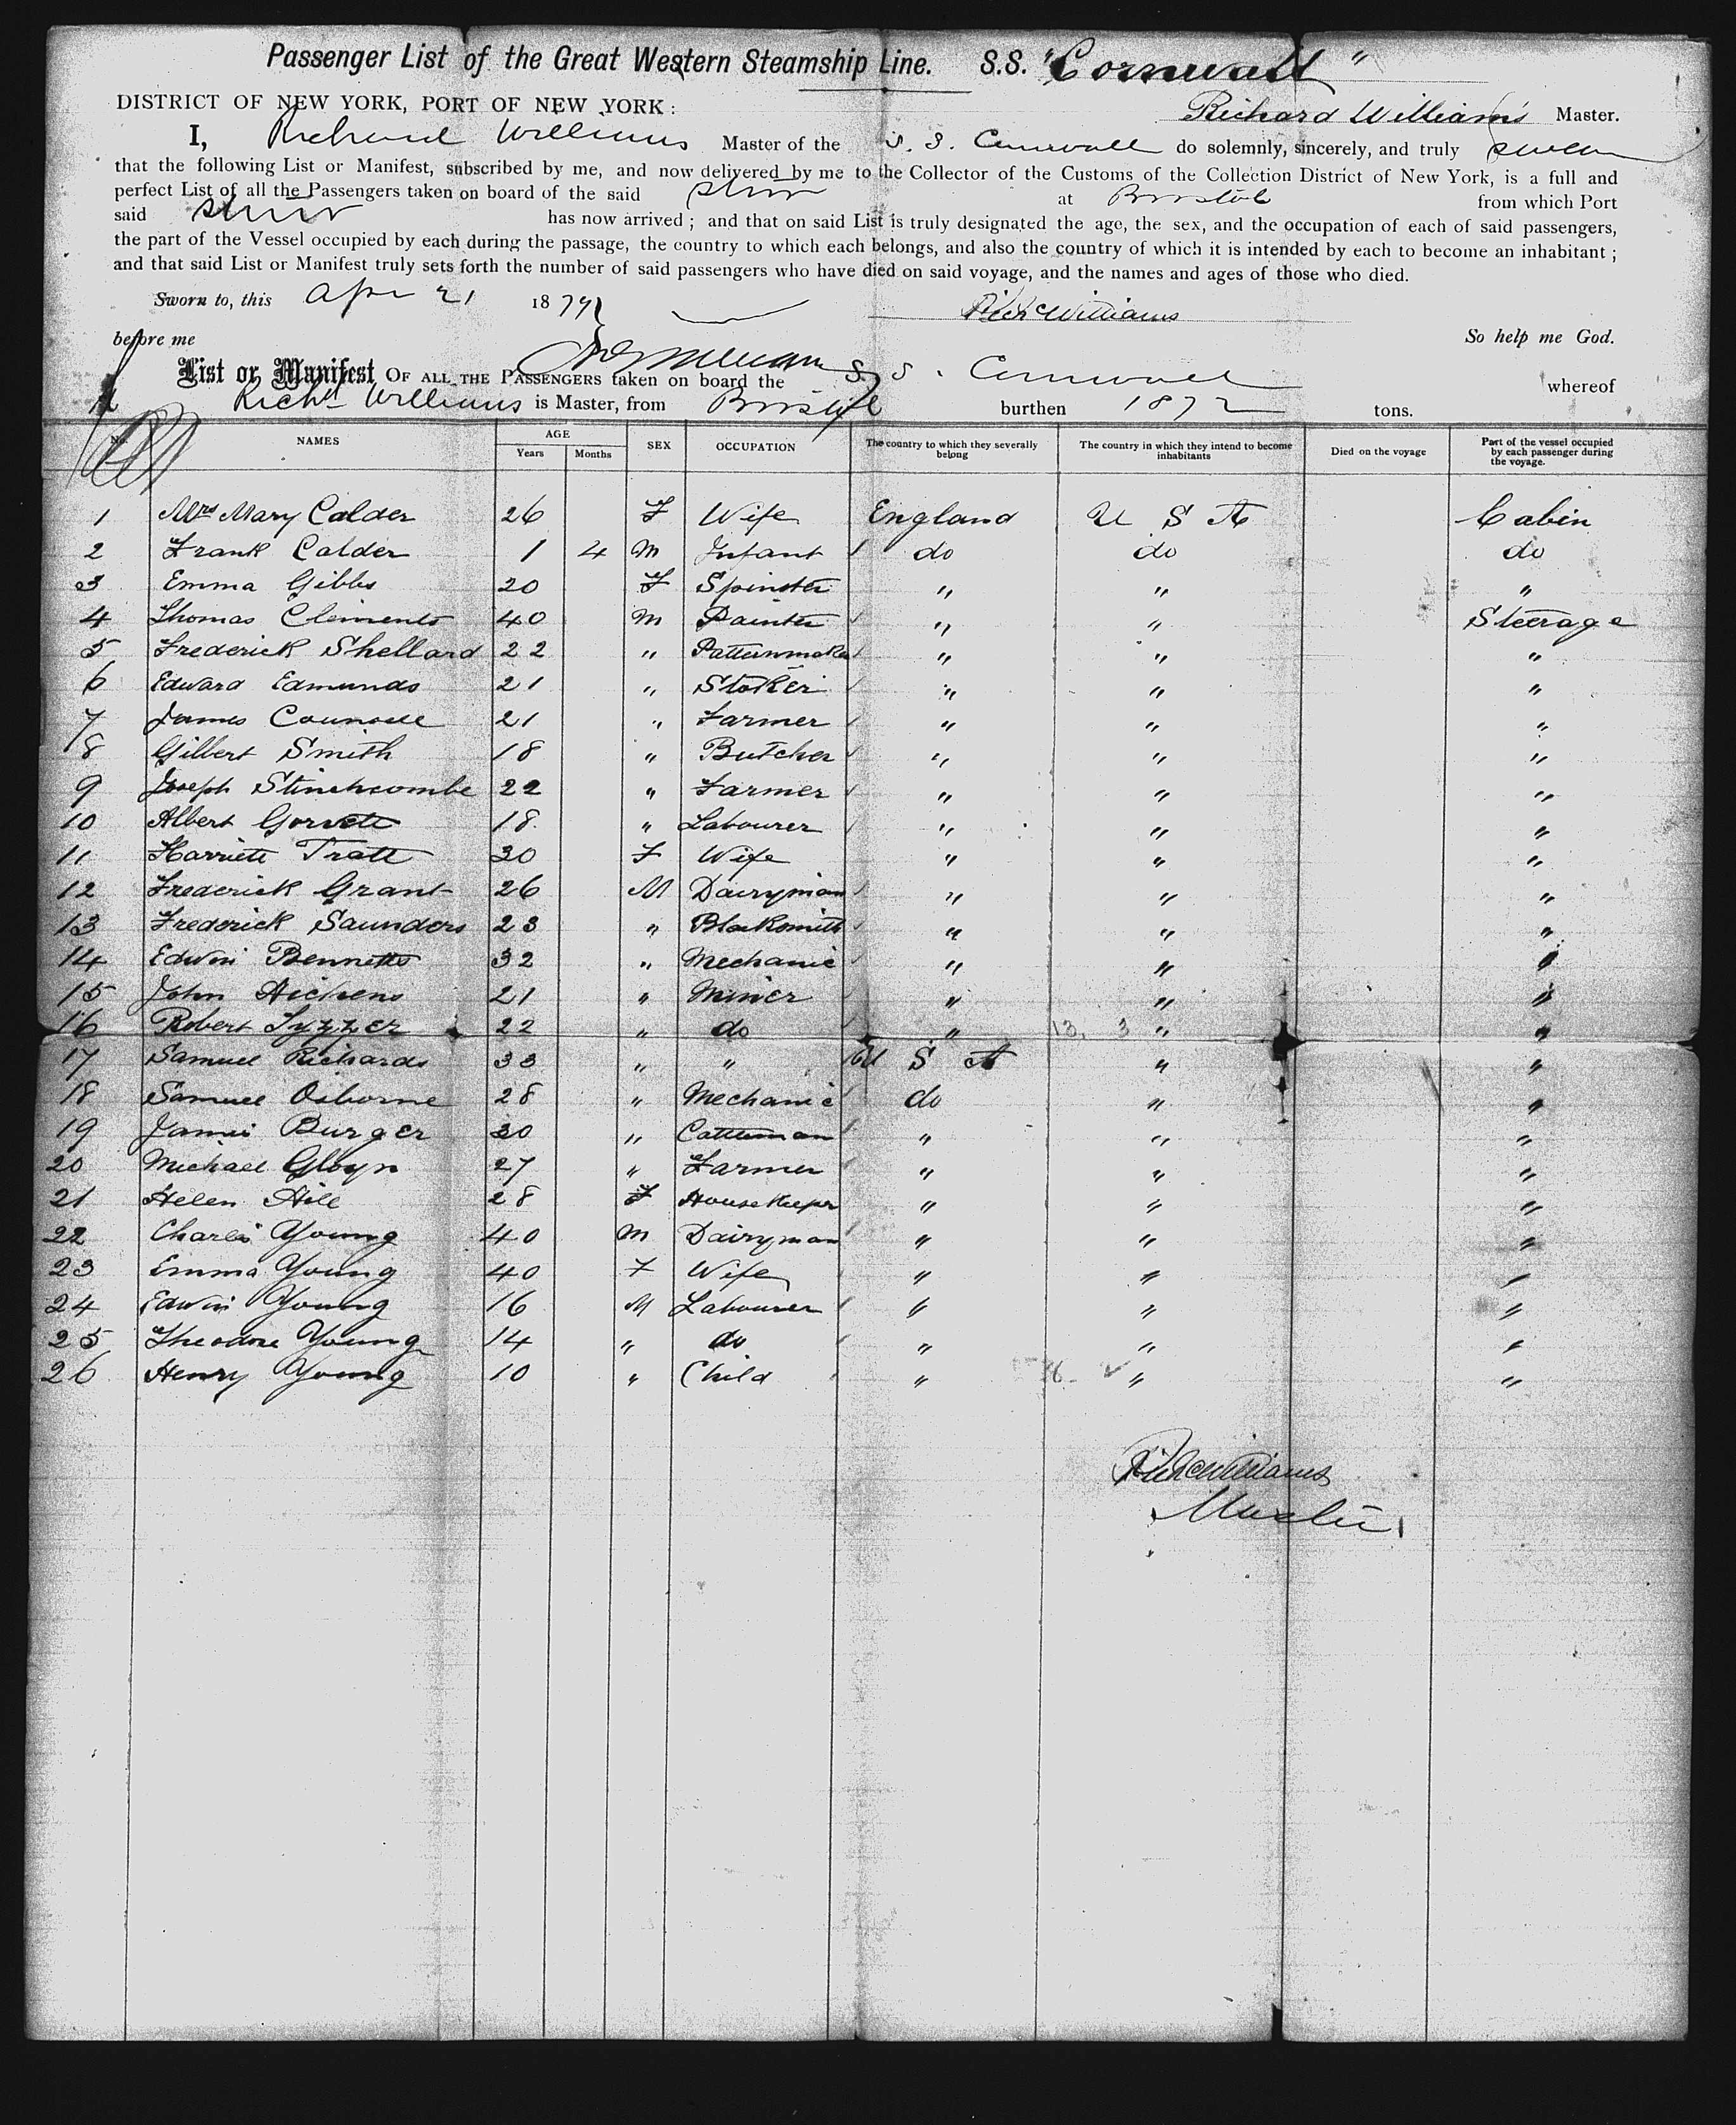 Passenger List of the Great Western Steamship Line. S.S. "Cornwall"
DISTRICT OF NEW YORK, PORT OF NEW YORK: Richard Williams Master.
I, Richard Williams Master of the S. S. Cornwall do solemnly, sincerely, and truly swear
that the following List or Manifest, subscribed by me, and now delivered by me to the Collector of the Customs of the Collection District of New York, is a full and
perfect List of all the Passengers taken on board of the said at Bristol from which Port
said has now arrived; and that on said List is truly designated the age, the sex, and the occupation of each of said passengers,
the part of the Vessel occupied by each during the passage, the country to which each belongs, and also the country of which it is intended by each to become an inhabitant;
and that said List or Manifest truly sets forth the number of said passengers who have died on said voyage, and the names and ages of those who died.
Sworn to, this Apr 21 1879 Rich Williams
before me So help me God.
List or Manifest OF ALL THE PASSENGERS taken on board the S. S. Cornwall whereof
Richd Williams is Master, from Bristol burthen 1872 tons.
No. NAMES AGE Years Months SEX OCCUPATION The country to which they severally belong The country in which they intend to become inhabitants Died on the voyage Part of the vessel occupied by each passenger during the voyage.
1 Mrs Mary Calder 26 F Wife England U S A Cabin
2 Frank Calder 1 4 M Infant do do do
3 Emma Gibbs 20 F Spinster " " "
4 Thomas Clements 40 M Painter " " Steerage
5 Frederick Shellard 22 " Patternmaker " " "
6 Edward Edmunds 21 " Stoker " " "
7 James Counsell 21 " Farmer " " "
8 Gilbert Smith 18 " Butcher " " "
9 Joseph Stinchcombe 22 " Farmer " " "
10 Albert Gorvett 18 " Labourer " " "
11 Harriett Tratt 30 F Wife " " "
12 Frederick Grant 26 M Dairyman " " "
13 Frederick Saunders 23 " Blacksmith " " "
14 Edwin Bennetts 32 " Mechanic " " "
15 John Hichens 21 " Miner " " "
16 Robert Tyzzer 22 " do " 13, 3 " "
17 Samuel Richards 33 " " U S A " "
18 Samuel Osborne 28 " Mechanic do " "
19 James Burger 30 " Cattleman " " "
20 Michael Gloyn 27 " Farmer " " "
21 Helen Hill 28 F Housekeeper " " "
22 Charles Young 40 M Dairyman " " "
23 Emma Young 40 F Wife " " "
24 Edwin Young 16 M Labourer " " "
25 Theodore Young 14 " do " " "
26 Henry Young 10 " Child " " "
Rich Williams
Master